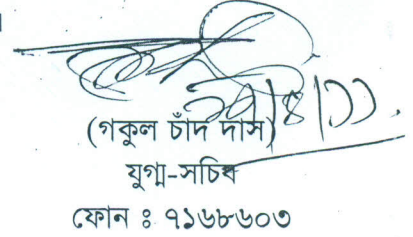 (গকুল চাঁদ দাস)
যুগ্ম-সচিব
ফোন ঃ ৭১৬৮৬০৩